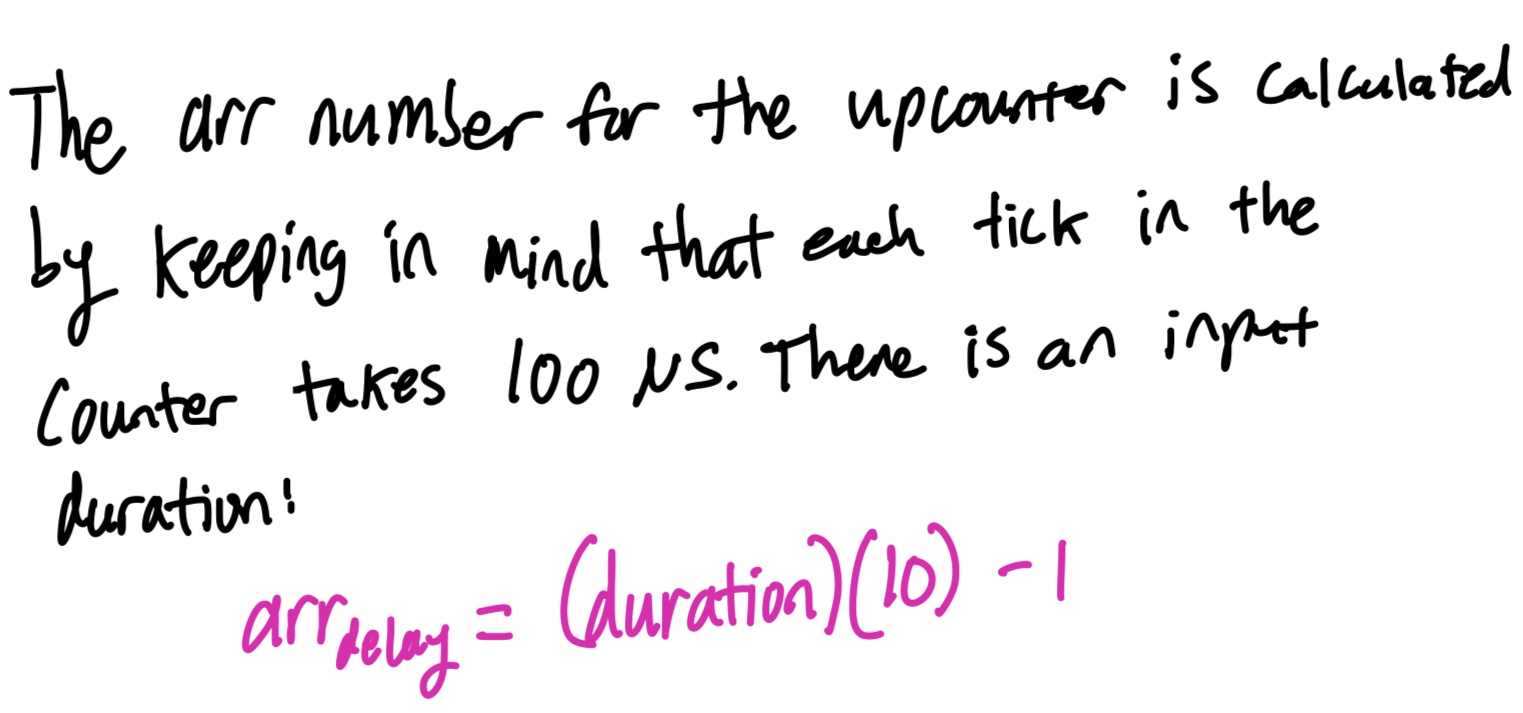 The arr number for the upcounter is calculated
by keeping in mind that each tick in the
Counter takes 100 µs. There is an input
duration:
arr delay = (duration)(10) - 1